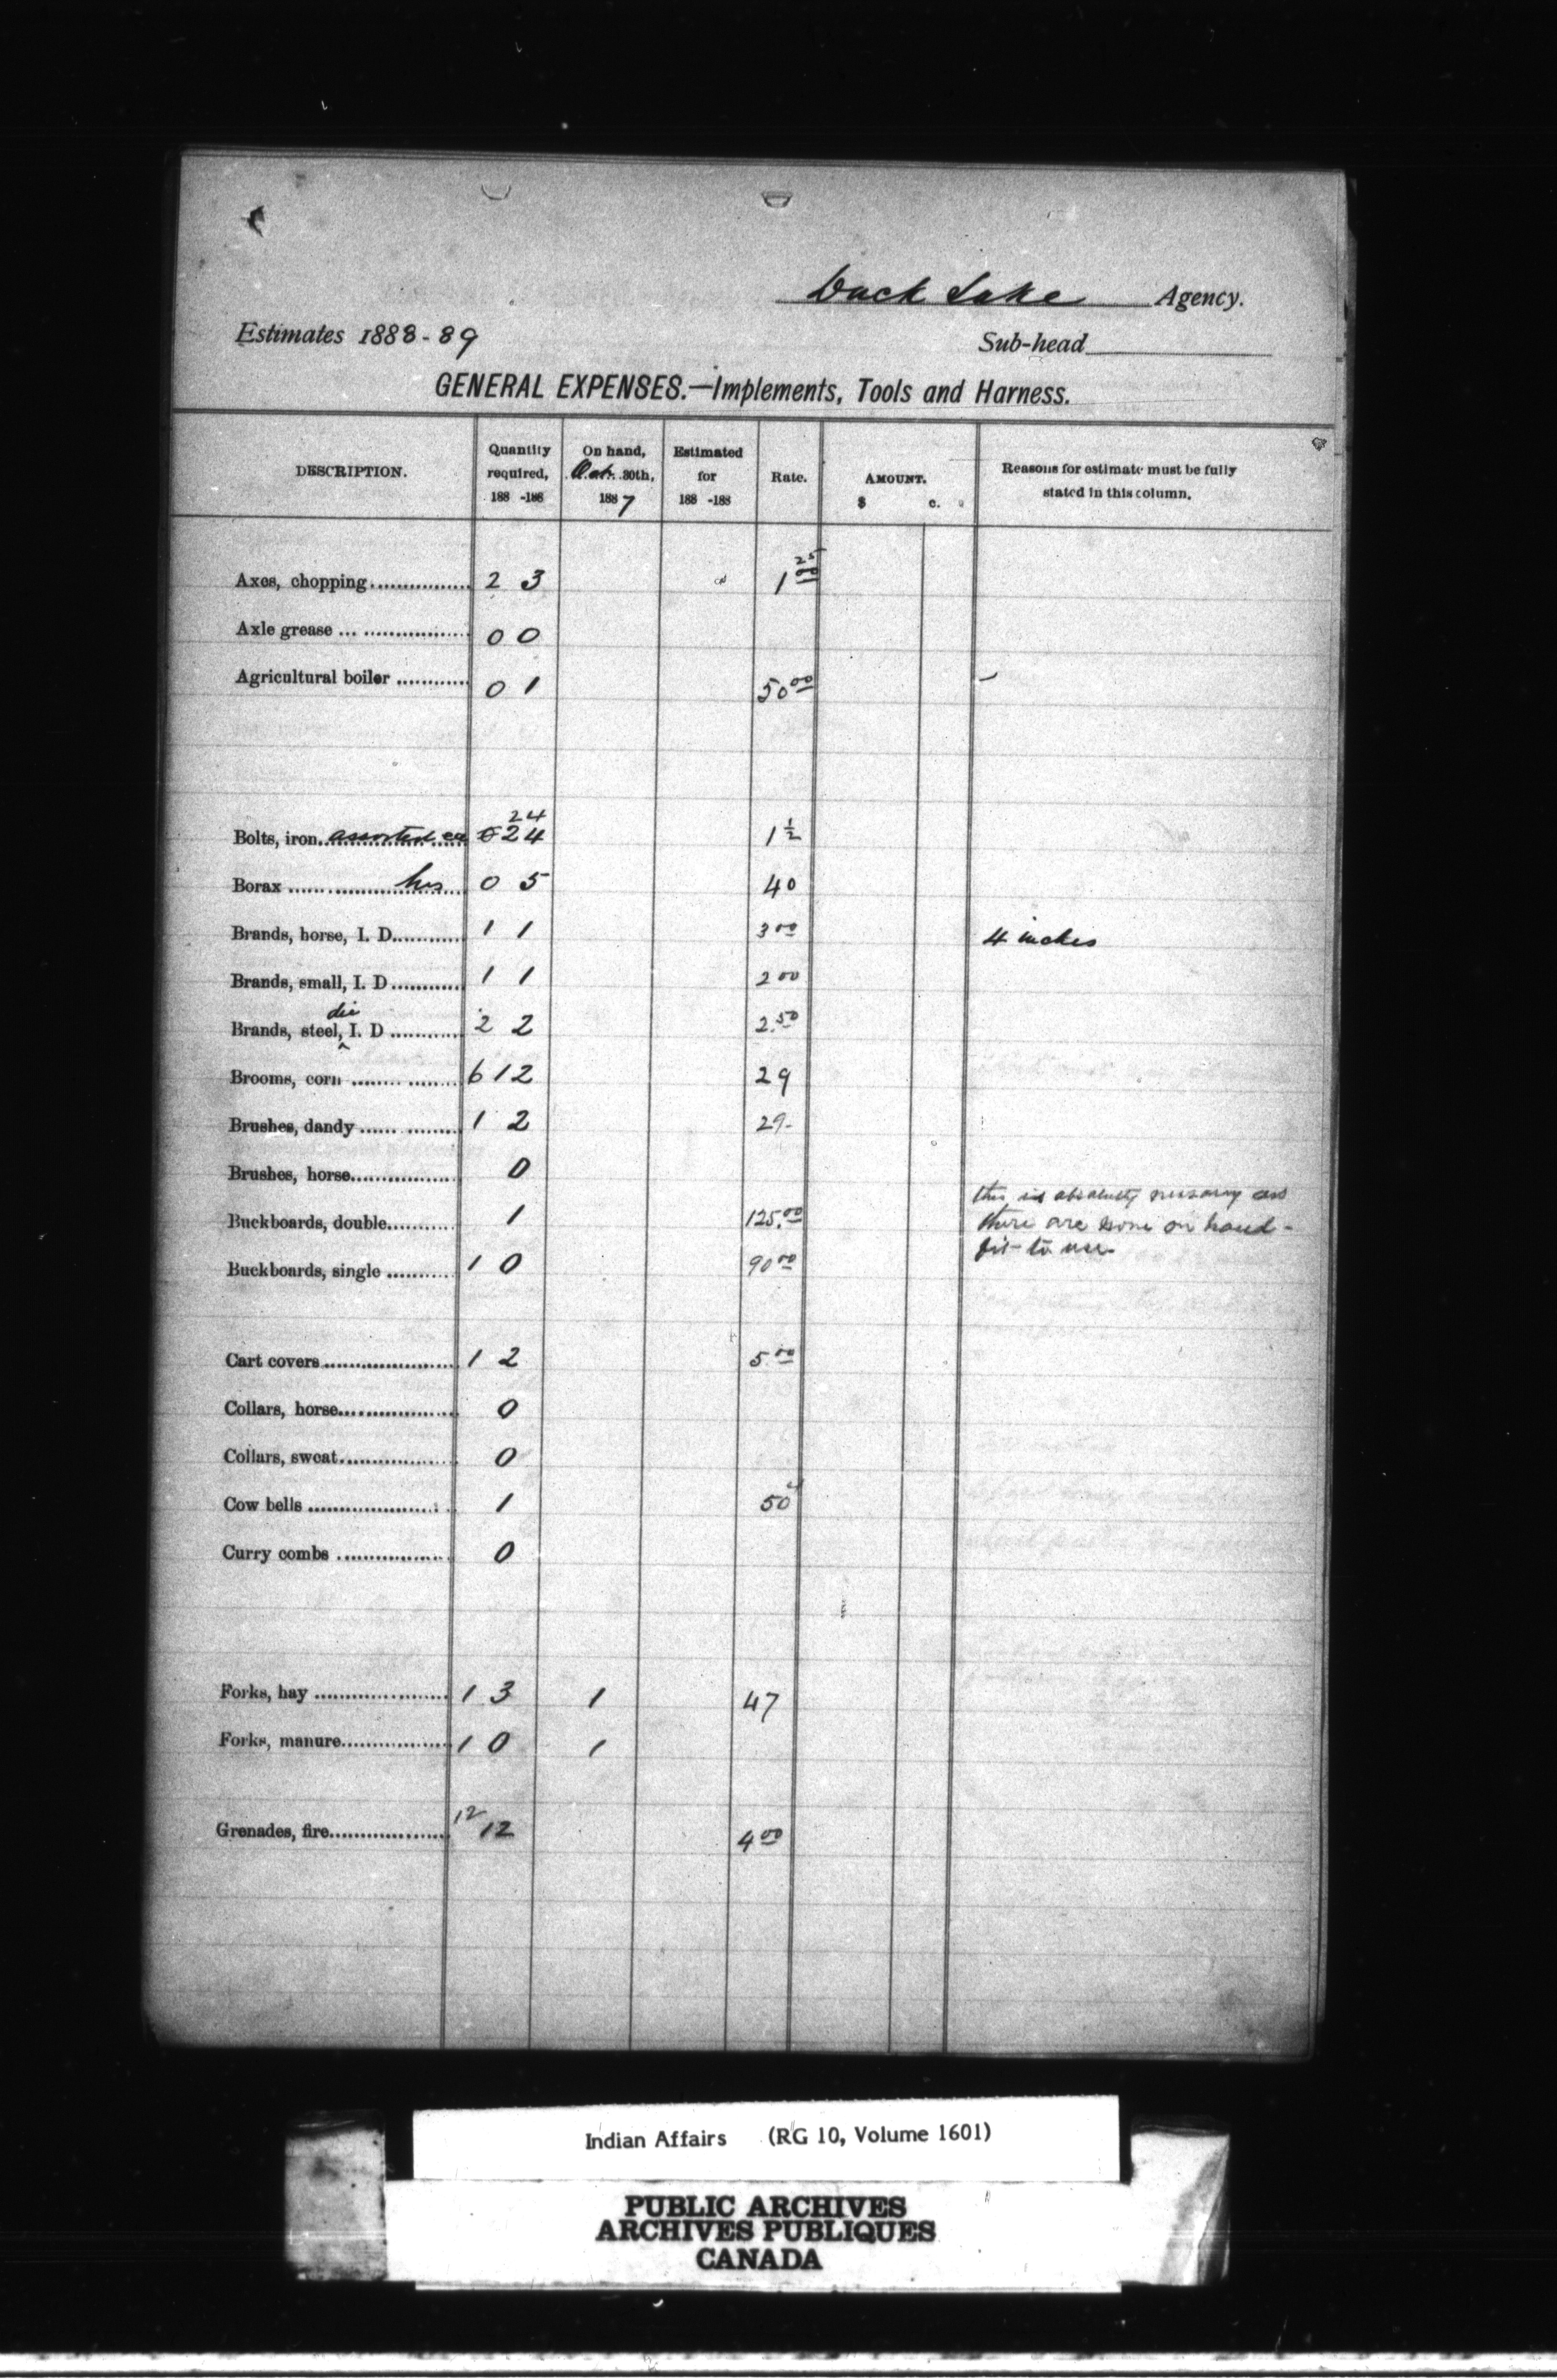 Duck Lake Agency.
Estimates 1888-89 Sub-head
GENERAL EXPENSES.—Implements, Tools and Harness.
DESCRIPTION. Quantity required, 188 -188 On hand, Oct. 30th, 1887 Estimated for 188 -188 Rate. AMOUNT. $ c. Reasons for estimate must be fully stated in this column.
Axes, chopping 2 3 1 00 25
Axle grease 0 0
Agricultural boiler 0 1 50 00
24
Bolts, iron assorted 24 1 1/2
Borax 0 5 40
Brands, horse, I. D. 1 1 3 00 4 inches
Brands, small, I. D 1 1 2 00
die
Brands, steel, I. D 2 2 2.50
Brooms, corn 6 12 29
Brushes, dandy 1 2 29-
Brushes, horse 0
Buckboards, double 1 125.00 this is absolutely necessary as
there are none on hand-
fit to use-
Buckboards, single 1 0 90 00
Cart covers 1 2 5.00
Collars, horse 0
Collars, sweat 0
Cow bells 1 50
Curry combs 0
Forks, hay 1 3 1 47
Forks, manure 1 0 1
Grenades, fire 12 12 4 00
Indian Affairs (RG 10, Volume 1601)
PUBLIC ARCHIVES
ARCHIVES PUBLIQUES
CANADA